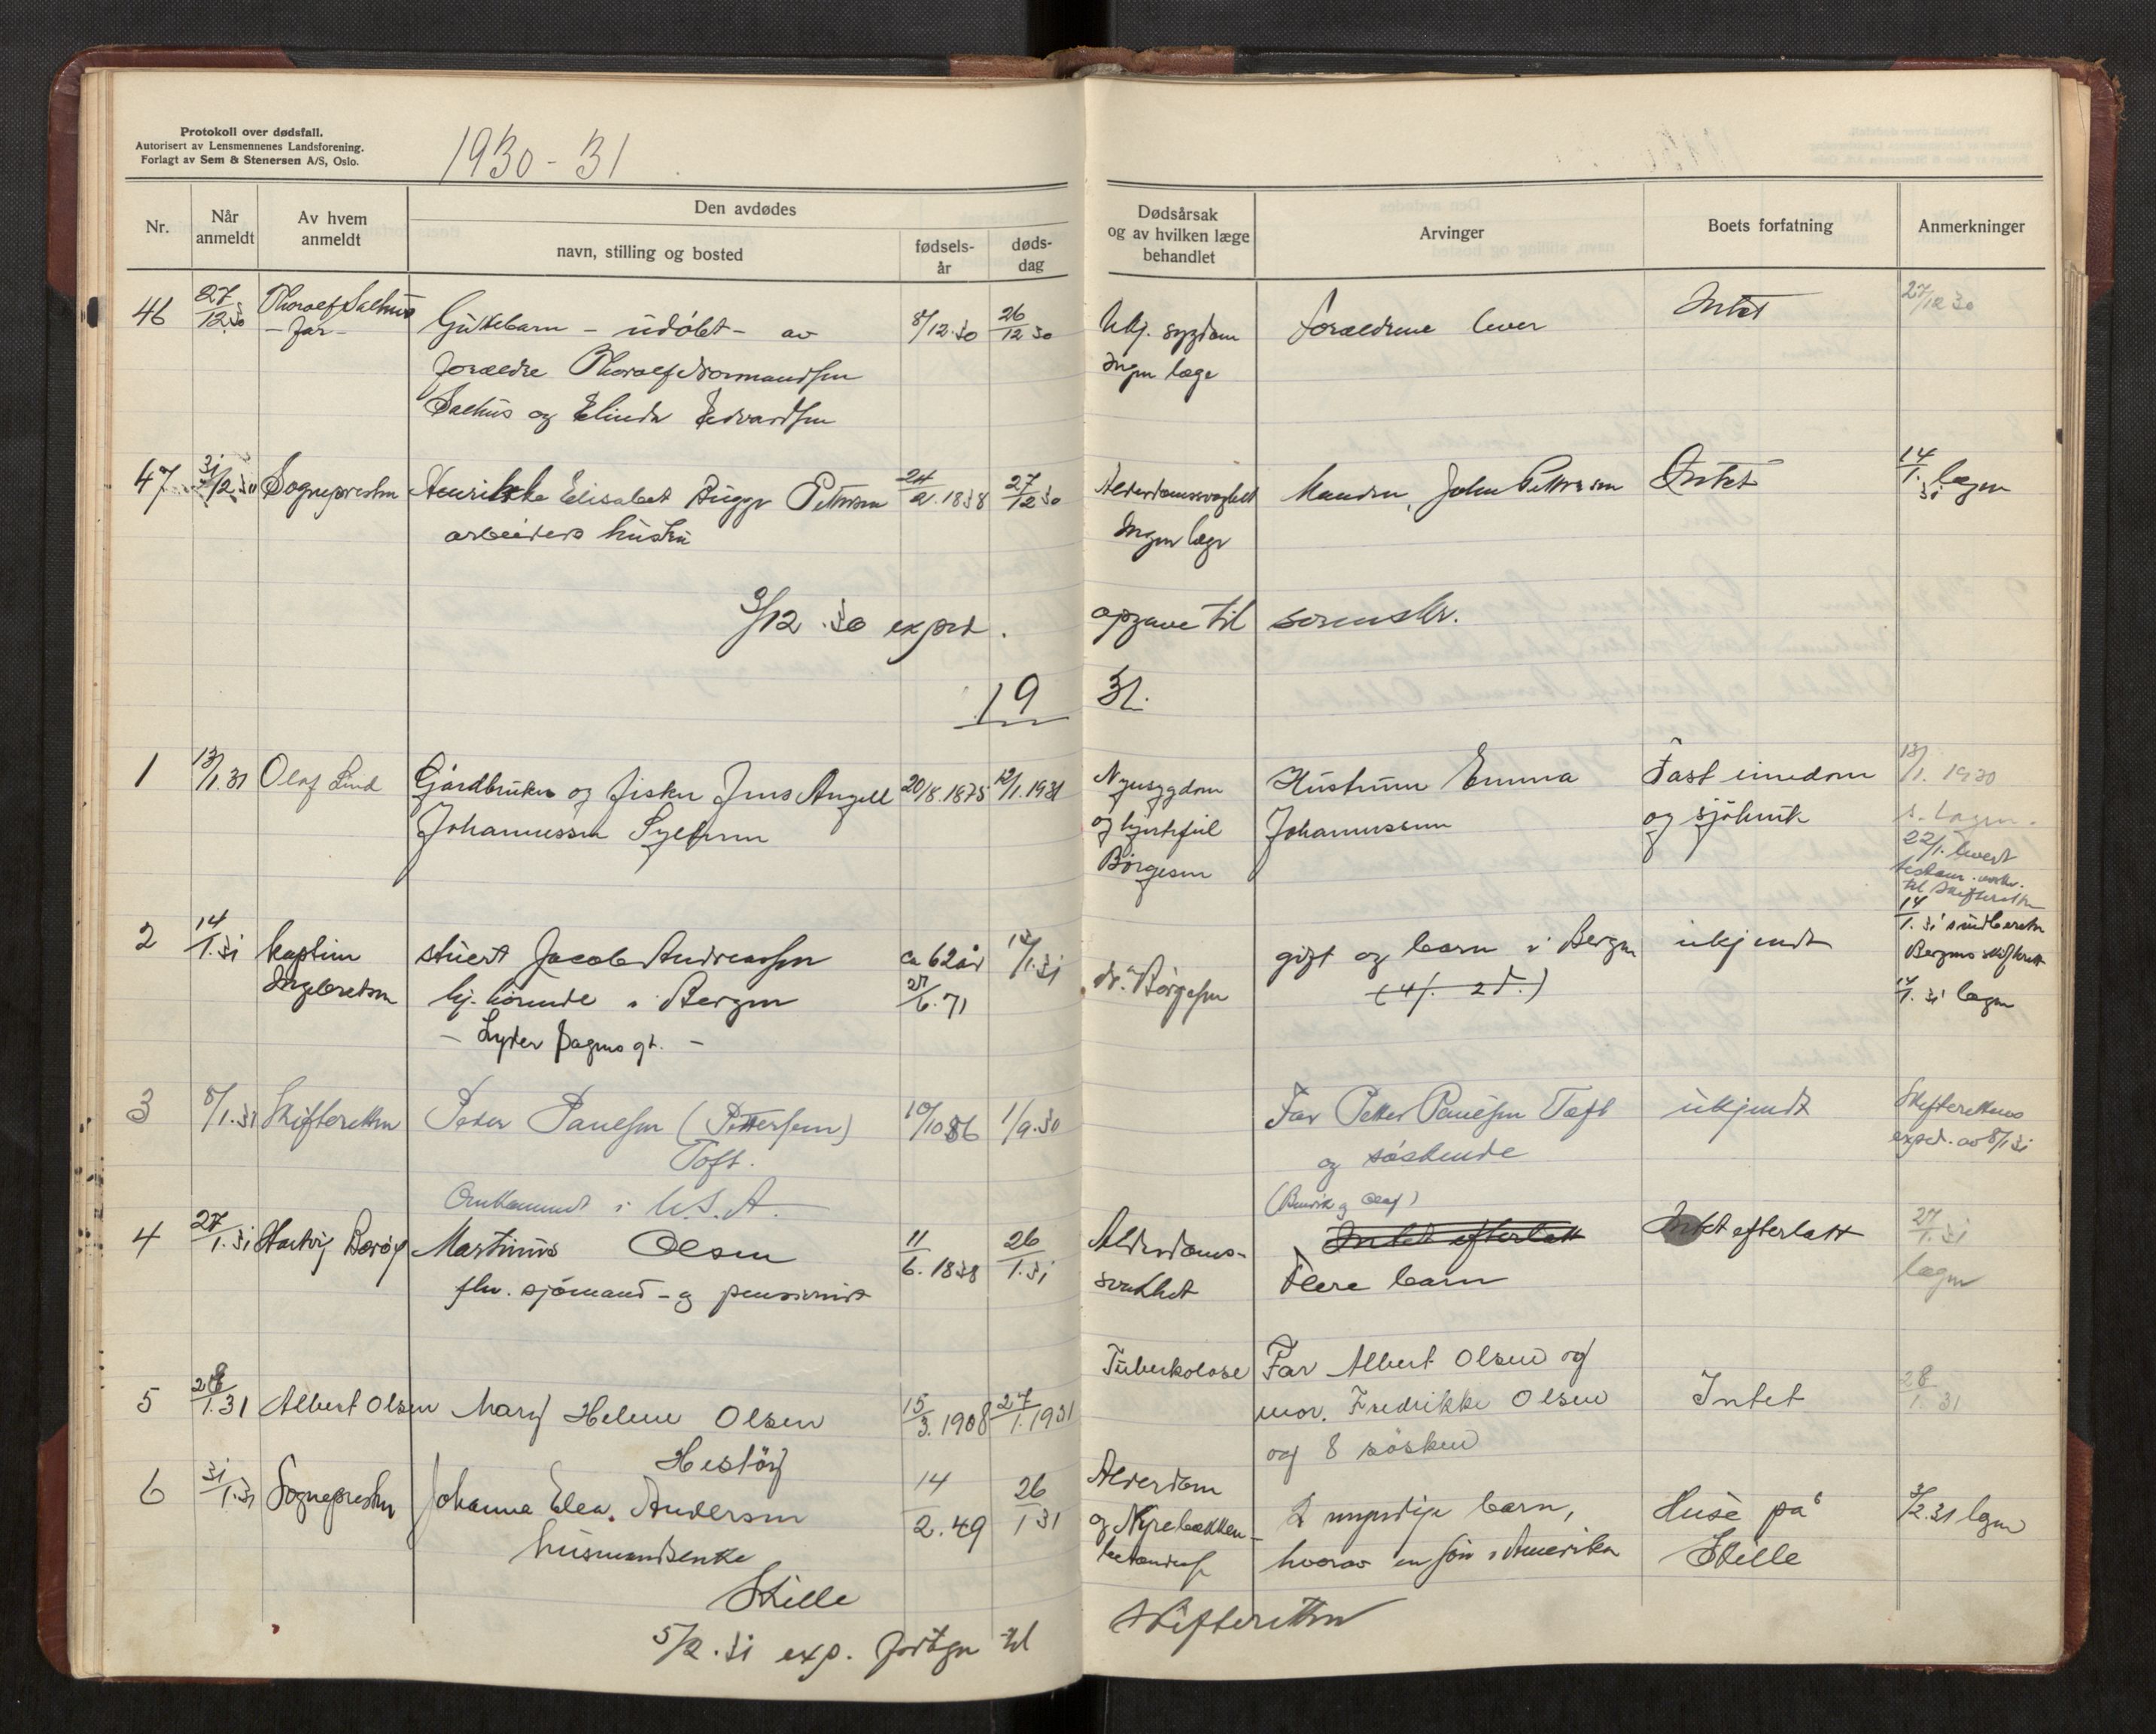 Protokoll over dødsfall.
Autorisert av Lensmennenes Landsforening.
Forlagt av Sem & Stenersen A/S, Oslo.
1930-31
Nr.
Når anmeldt
Av hvem anmeldt
Den avdødes
navn, stilling og bosted
fødsels-år
døds-dag
Dødsårsak og av hvilken læge behandlet
Arvinger
Boets forfatning
Anmerkninger
46 27/12 30 Thoralf Salhus Guttebarn - udöbt - av 8/12.30 26/12 30 Ukj. sygdom Foraeldrene lever Intet 27/12 30
- far - foraeldre Thoralf Normandsen Ingen læge
Salhus og Elinda Edvardsen
47 31/12 30 Sognepresten Henrikke Elisabet Bugge Pettersen 24/2.1838 27/12 30 Alderdomssvaghet Manden, John Pettersen Intet 14/1.31 lagm
arbeiders hustru Ingen læge
3/12.30 exped. opgave til sorenskr.
19 31.
1 13/1.31 Olaf Lind Gårdbruker og fisker Jens Angell 20/8.1875 12/1.1931 Nyresygdom Hustruen Emma Fast eiendom 13/1. 1930
Johannessen og hjertefeil Johannessen og sjöbruk s. lagm.
Börgesen 22/1. levert
til Skifteretten
2 14/1.31 kaptein stuert Jacob Andreassen ca 62 år 12/1.31 gift og barn i Bergen ukjendt 14/1.31
Ingebretsen hj. hörende i Bergen 27/6.71 dr. Börgesen (4 f. 2 d.) Bergens skifterett
- Lyder Sagens gt. - 14/1.31 lagm
3 8/1.31 Skifteretten Peder Paulsen (Pettersen) 10/10 86 1/9.30 Far Petter Paulsen Toft ukjendt Skifterettens
Toft. og söskende exped. av 8/1 31
Omkommet i U.S.A. (Benrik og Olaf)
4 27/1.31 Hartvig Boröy Martinus Olsen 11/6.1838 26/1.31 Alderdoms- Intet efterlatt Intet efterlatt 27/1.31
fhv. sjömand - og pensionist svakhet Flere barn lagm
5 28/1.31 Albert Olsen Mary Helene Olsen 15/3.1908 27/1.1931 Tuberkolose Far Albert Olsen og Intet 28/1.31
mor. Fredrikke Olsen
Hestöy og 8 sösken
6 31/1.31 Sognepresten Johanna Elea. Andersen 14/2.49 26/1 31 Alderdom 2 myndige barn, Huse på 3/2.31 lagm
husmandsenke og Nyrebækken- hvorav en sön i Amerika Stille
Stille betændelse
5/2.31 exp. fortgn til Skifteretten